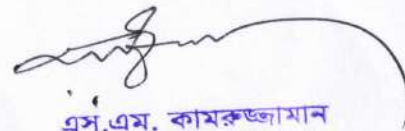 এস.এম. কামরুজ্জামান